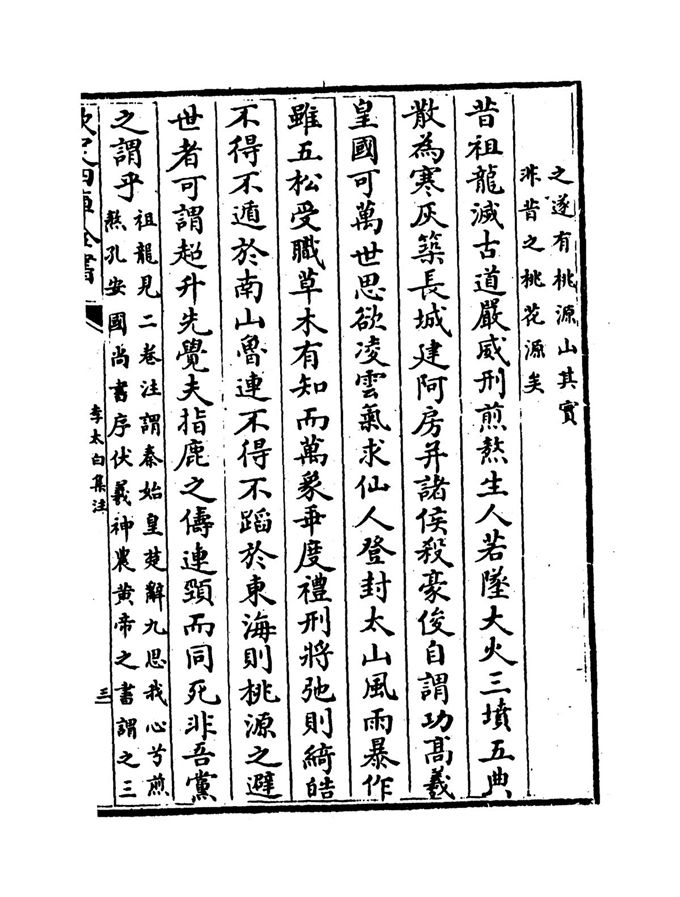 之遂有桃源山其實
非昔之桃花源矣
昔祖龍滅古道嚴威刑煎熬生人若墜大火三墳五典
散為寒灰築長城建阿房并諸侯殺豪俊自謂功髙羲
皇國可萬世思欲凌雲氣求仙人登封太山風雨暴作
雖五松受職草木有知而萬象乖度禮刑將弛則綺皓
不得不遁於南山魯連不得不蹈於東海則桃源之避
世者可謂超升先覺夫指鹿之儔連頸而同死非吾黨
之謂乎
祖龍見二卷注謂秦始皇楚辭九思我心兮煎
熬孔安國尚書序伏羲神農黄帝之書謂之三
欽定四庫全書
李太白集注
三